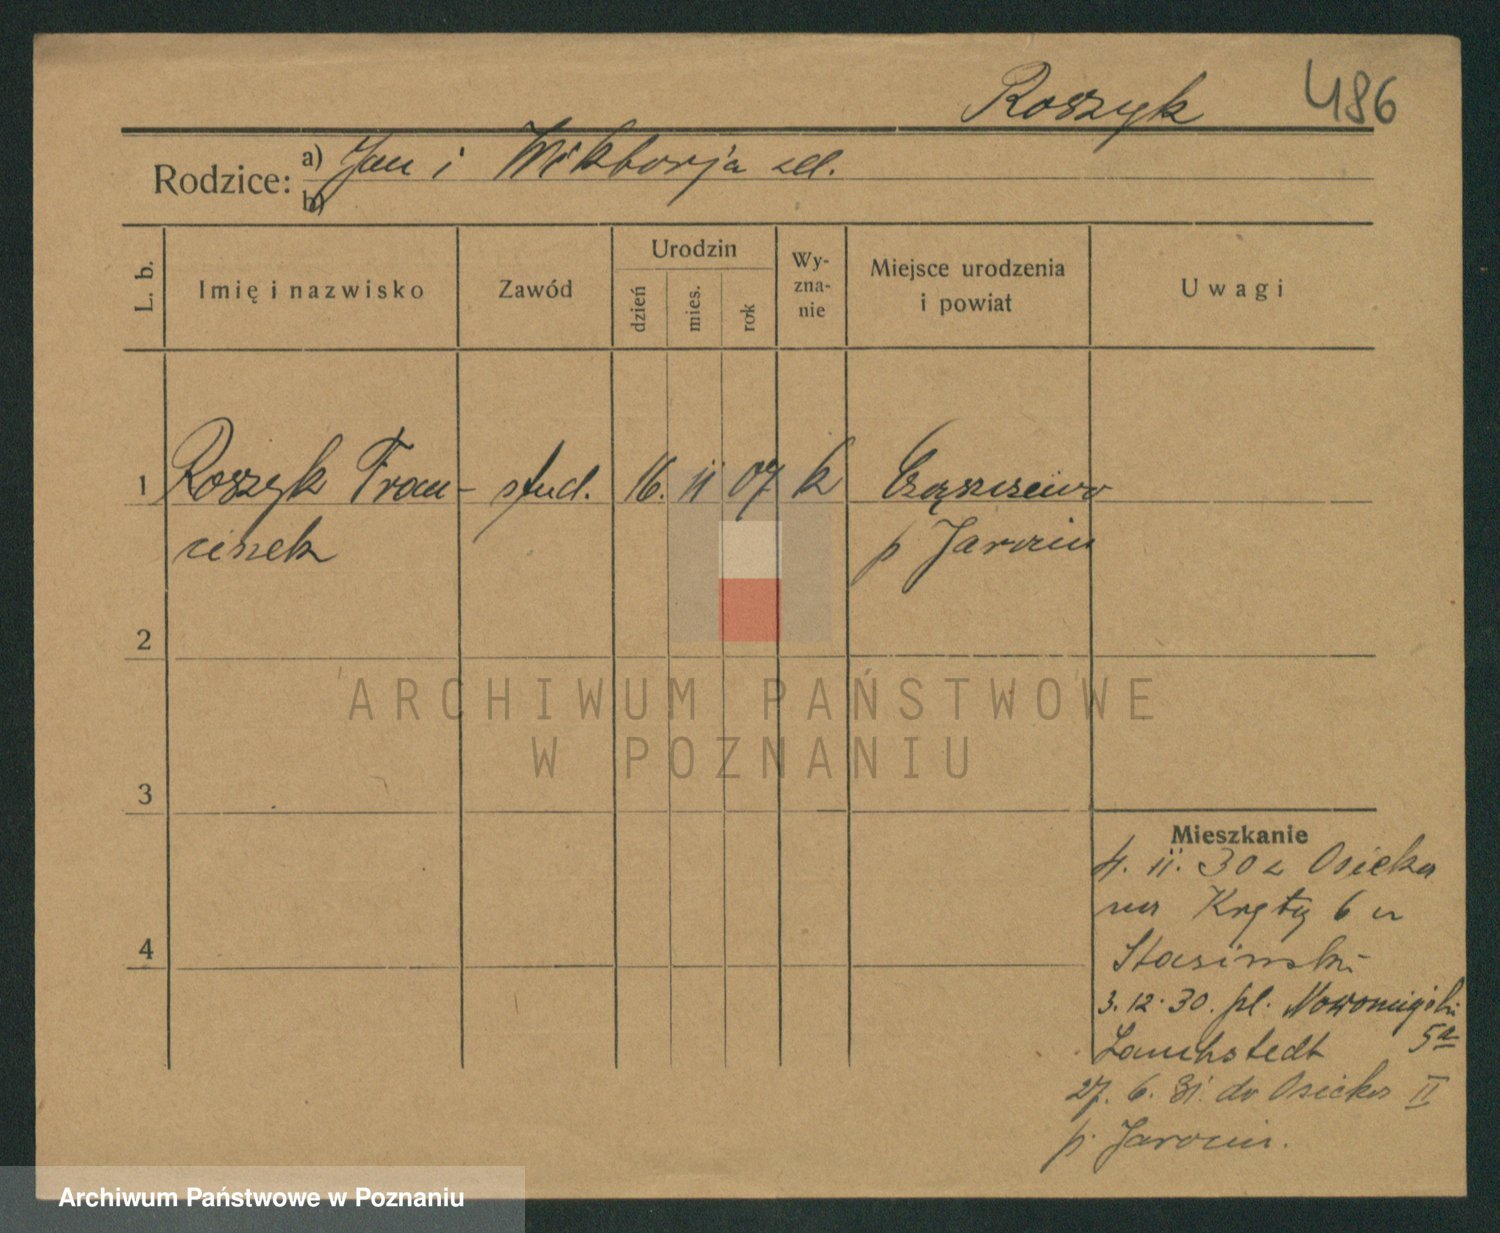 Roszyk 486
Rodzice: a) Jan i Wiktorja
b)
L. b.
Imię i nazwisko
Zawód
Urodzin
dzień
mies.
rok
Wy-
zna-
nie
Miejsce urodzenia
i powiat
Uwagi
1 Roszyk Fran- stud. 16. ii 07 k
ciszek p Jarocin
2
3
4
Mieszkanie
4. ii. 30 z Osieka
na Kręty 6 u
Stasiński
3. 12. 30. pl. Nowomiejski
Lauchstedt 5a
27. 6. 31. do Osieka II
p. Jarocin.
ARCHIWUM PAŃSTWOWE
W POZNANIU
Archiwum Państwowe w Poznaniu